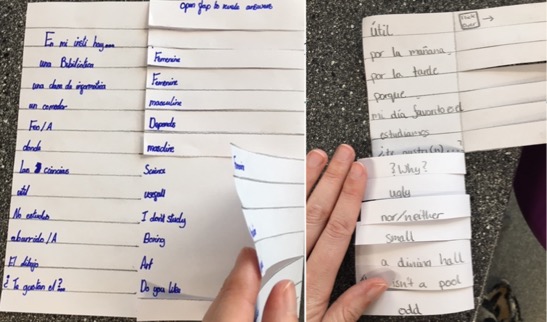 open flap to reveal answers
En mi insti hay...
una Biblioteca
una clase de informática
un comedor
Feo/A
donde
Las ciencias
util
No estudio
aburrido/A
El dibujo
¿Te gustan el?...
Feminine
Feminine
masculine
Depends
masculine
Science
usefull
I don't study
Boring
Art
Do you like
Útil
por la mañana.
por la tarde
porque
mi día favorito es el
estudiamos
¿te gusta(n)...
?Why?
ugly
nor/neither
small
a dining hall
isn't a pool
odd